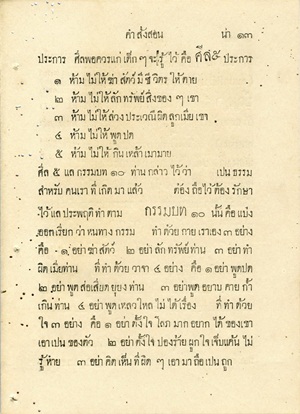 คำ สั่งสอน น่า ๑๓
ประการ ศีลพอควรแก่เด็ก ๆ จะรู้ ไว้ คือ ศีล๕ ประการ
๑ ห้าม ไม่ให้ ฆ่า สัตว์ มี ชี วิตร ให้ ตาย
๒ ห้าม ไม่ให้ ลัก ทรัพย์ สิ่งของ ๆ เขา
๓ ห้าม ไม่ให้ ล่วง ประเวณี ผิด ลูกเมีย เขา
๔ ห้าม ไม่ให้ พูด ปด
๕ ห้าม ไม่ให้ กิน เหล้า เมามาย
ศีล ๕ แล กรรมบท ๑๐ ท่าน กล่าว ไว้ ว่า เปน ธรรม
สำหรับ คนเรา ที่ เกิด มา แล้ว ต้อง ถือ ไว้ ต้อง รักษา
ไว้ แล ประพฤติ ทำ ตาม กรรมบท ๑๐ นั้น คือ แบ่ง
ออก เรียก ว่า หนทาง กรรม ทำ ด้วย กาย เรา เอง ๓ อย่าง
คือ ๑ อย่า ฆ่า สัตว์ ๒ อย่า ลัก ทรัพย์ ท่าน ๓ อย่า ทำ
ผิด เมีย ท่าน ที่ ทำ ด้วย วาจา ๔ อย่าง คือ ๑ อย่า พูด ปด
๒ อย่า พูด ส่อ เสียด ยุยง ท่าน ๓ อย่า พูด หยาบ คาย ก้ำ
เกิน ท่าน ๔ อย่า พูด เหลวไหล ไม่ ได้ เรื่อง ที่ ทำ ด้วย
ใจ ๓ อย่าง คือ ๑ อย่า ตั้ง ใจ โลภ มาก อยาก ได้ ของ เขา
เอา เปน ของ ตัว ๒ อย่า ตั้ง ใจ ปองร้าย ผูก ใจ เจ็บ แค้น ไม่
รู้ หาย ๓ อย่า คิด เห็น ที่ ผิด ๆ เอา มา ถือ เปน ถูก